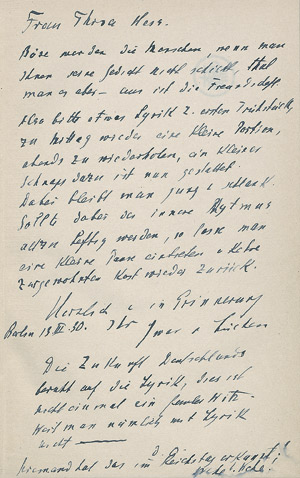 Frau Thora Hess.
Böse werden die Menschen, wenn man
ihnen seine Gedichte nicht schickt, thut
man es aber — aus ist die Freundschaft.
Also bitte etwas Lyrik z. ersten Frühstück,
zu Mittag wieder eine kleine Portion,
abends zu wiederholen, ein kleiner
Schnaps dazu ist nur gestattet.
Dabei bleibt man jung u. schlank.
Sollte dabei der innere Rhytmus
allzu heftig werden, so lasse man
eine kleine Pause eintreten u. kehre
zur gewohnten Kost wieder zurück.
Herzlich u. in Erinnerung
Berlin 30. Ihr
Die Zukunft Deutschlands
beruht auf die Lyrik, dies ist
nicht einmal ein fauler Witz.
Weil man nämlich mit Lyrik
nicht —
niemand hat das im Reichstag erkannt!